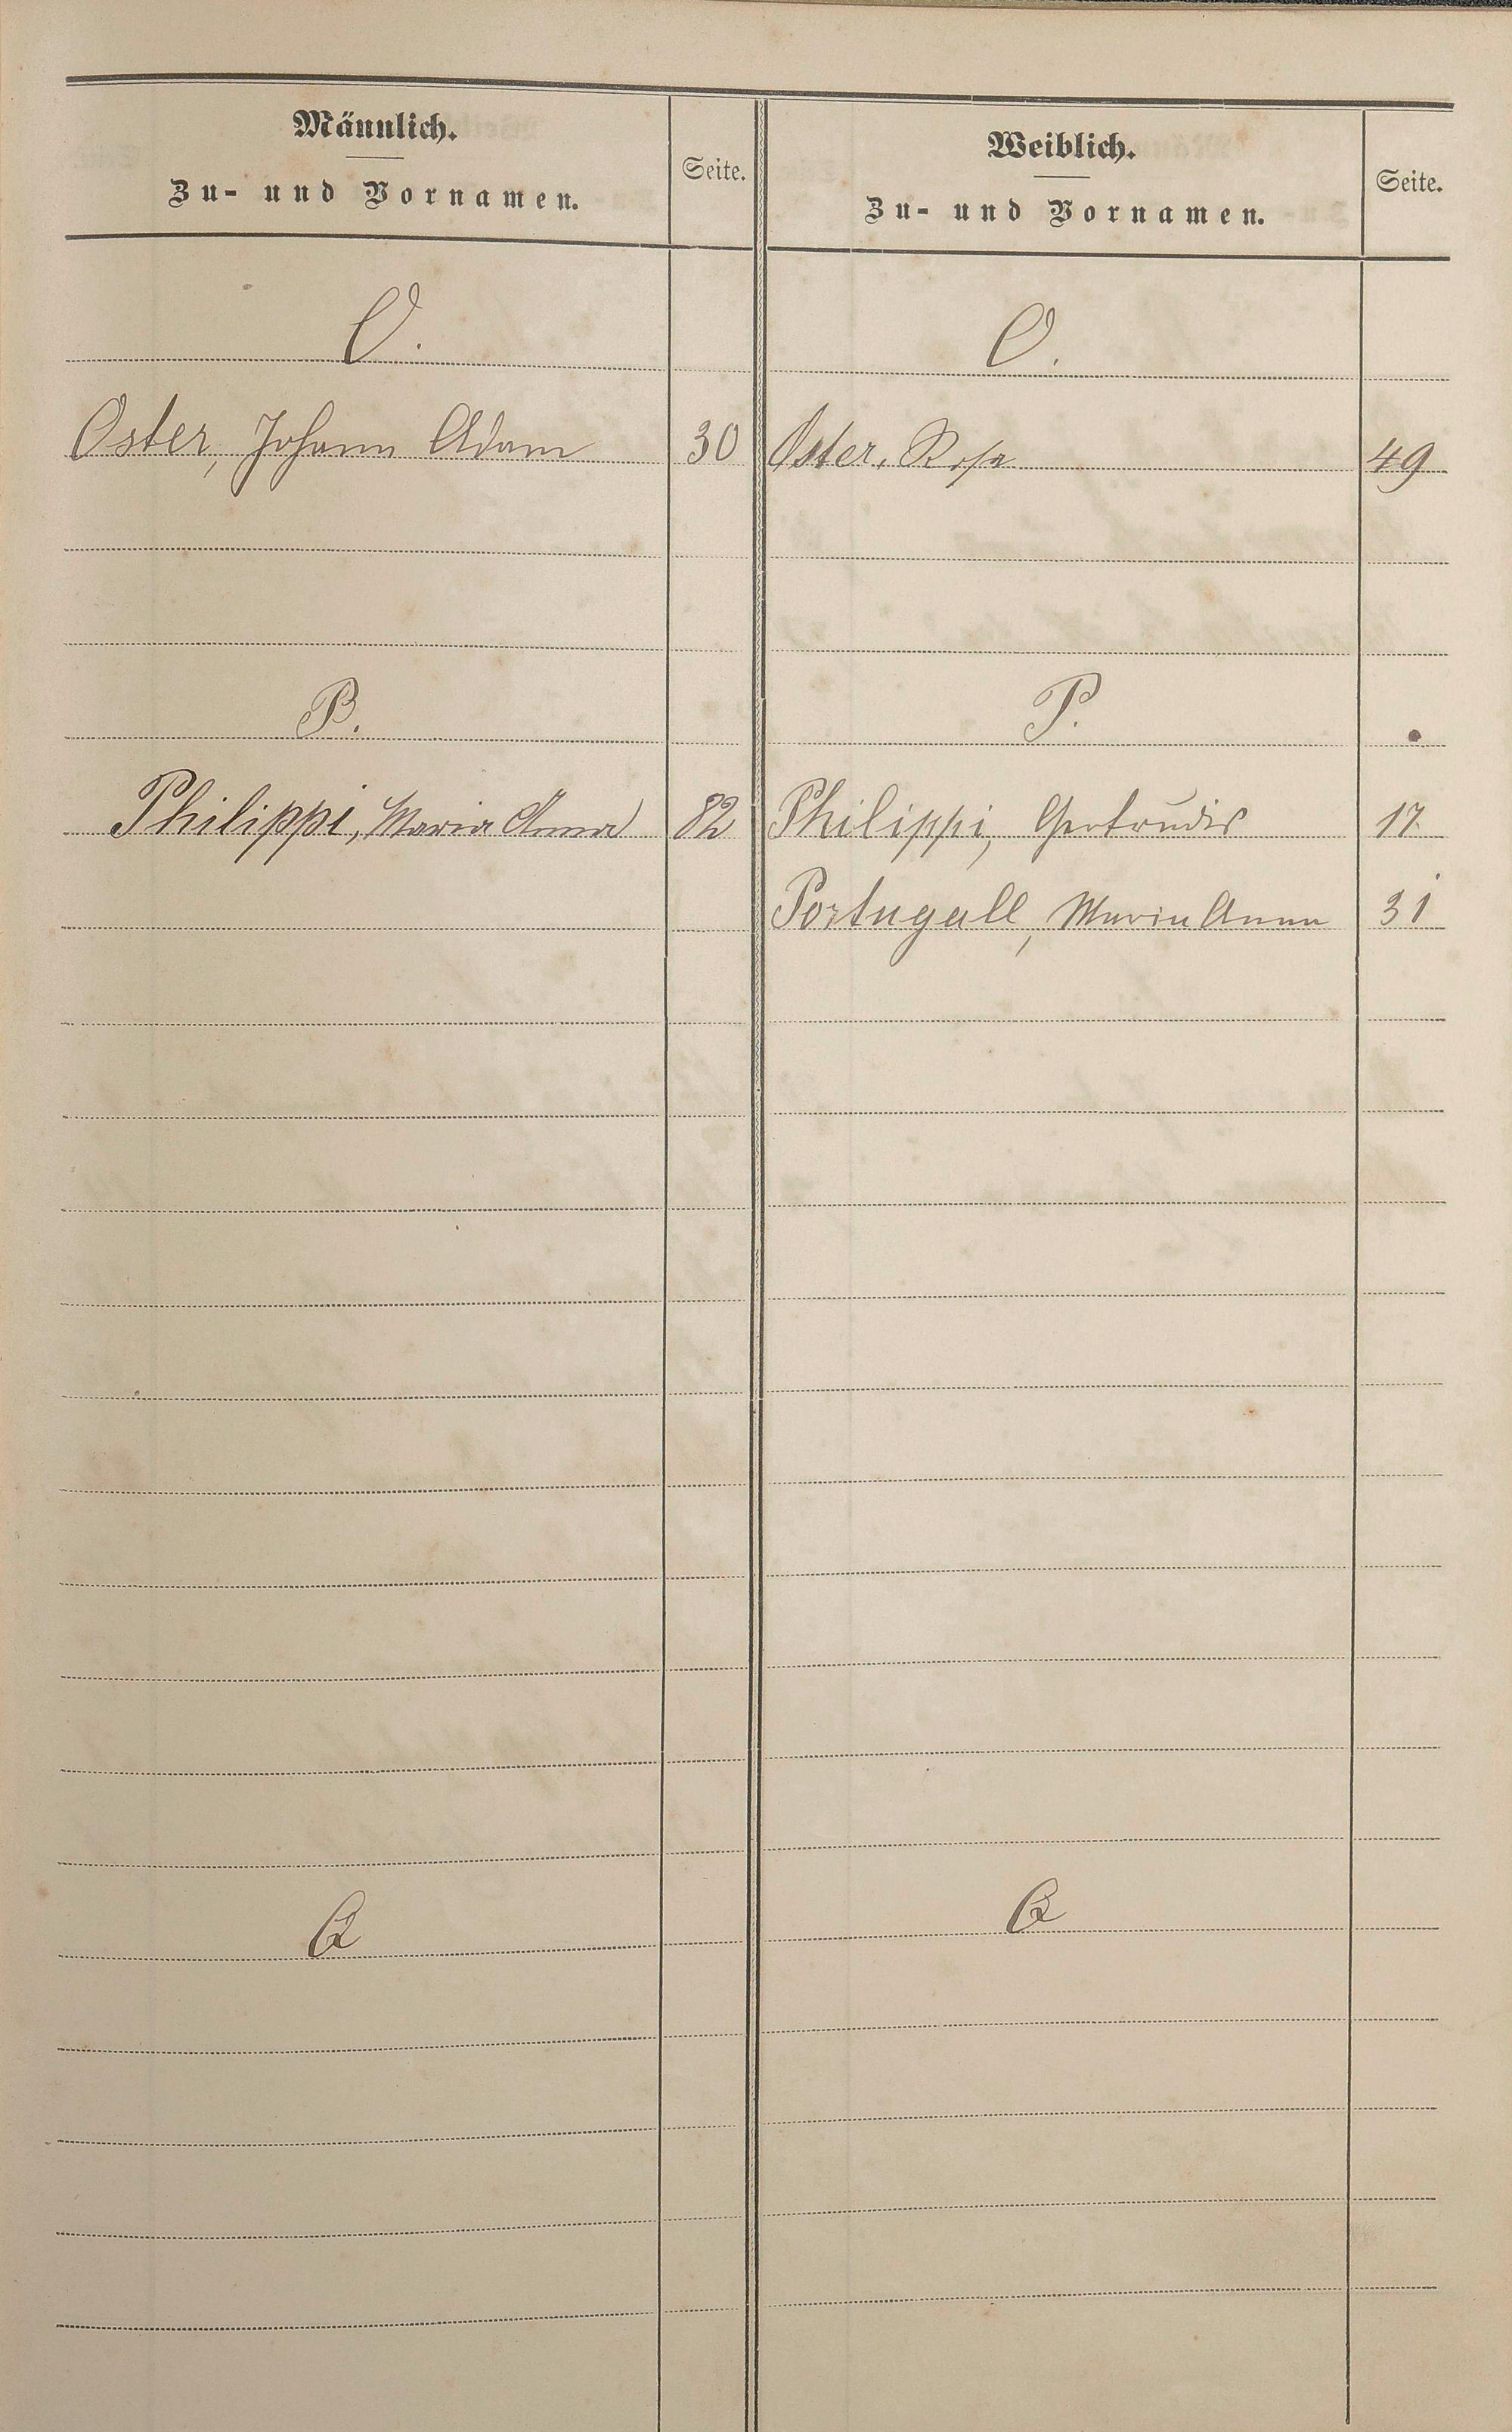 Männlich.
Zu- und Vornamen.
Seite.
Weiblich.
Zu- und Vornamen.
Seite.
O.
O.
Oster, Johann Adam 30
Oster, Rosa 49
P.
P.
Philippi, Maria Anna 82
Philippi, Gertrudis 17.
Portugall, Maria Anna 31
Q
Q